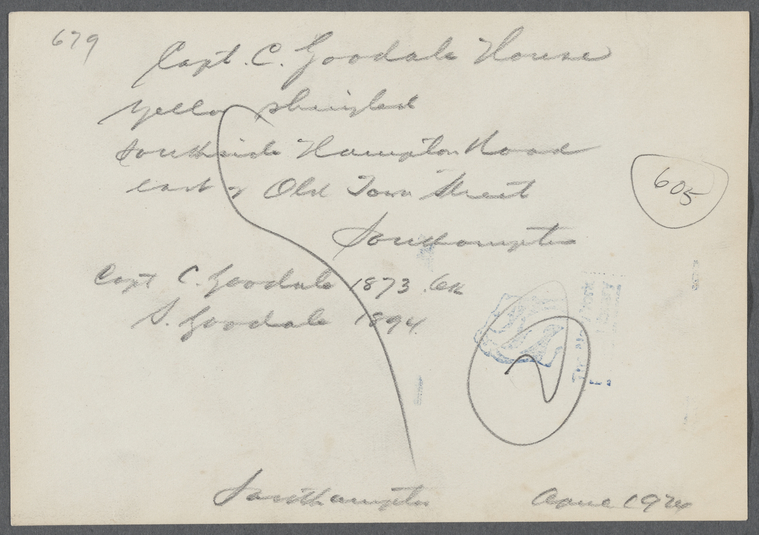 679
Capt. C. Goodale House
Yellow shingled
Southside Hampton Road
east of Old Town Street
605
Southampton
Capt C. Goodale 1873
S. Goodale 1894
Southampton